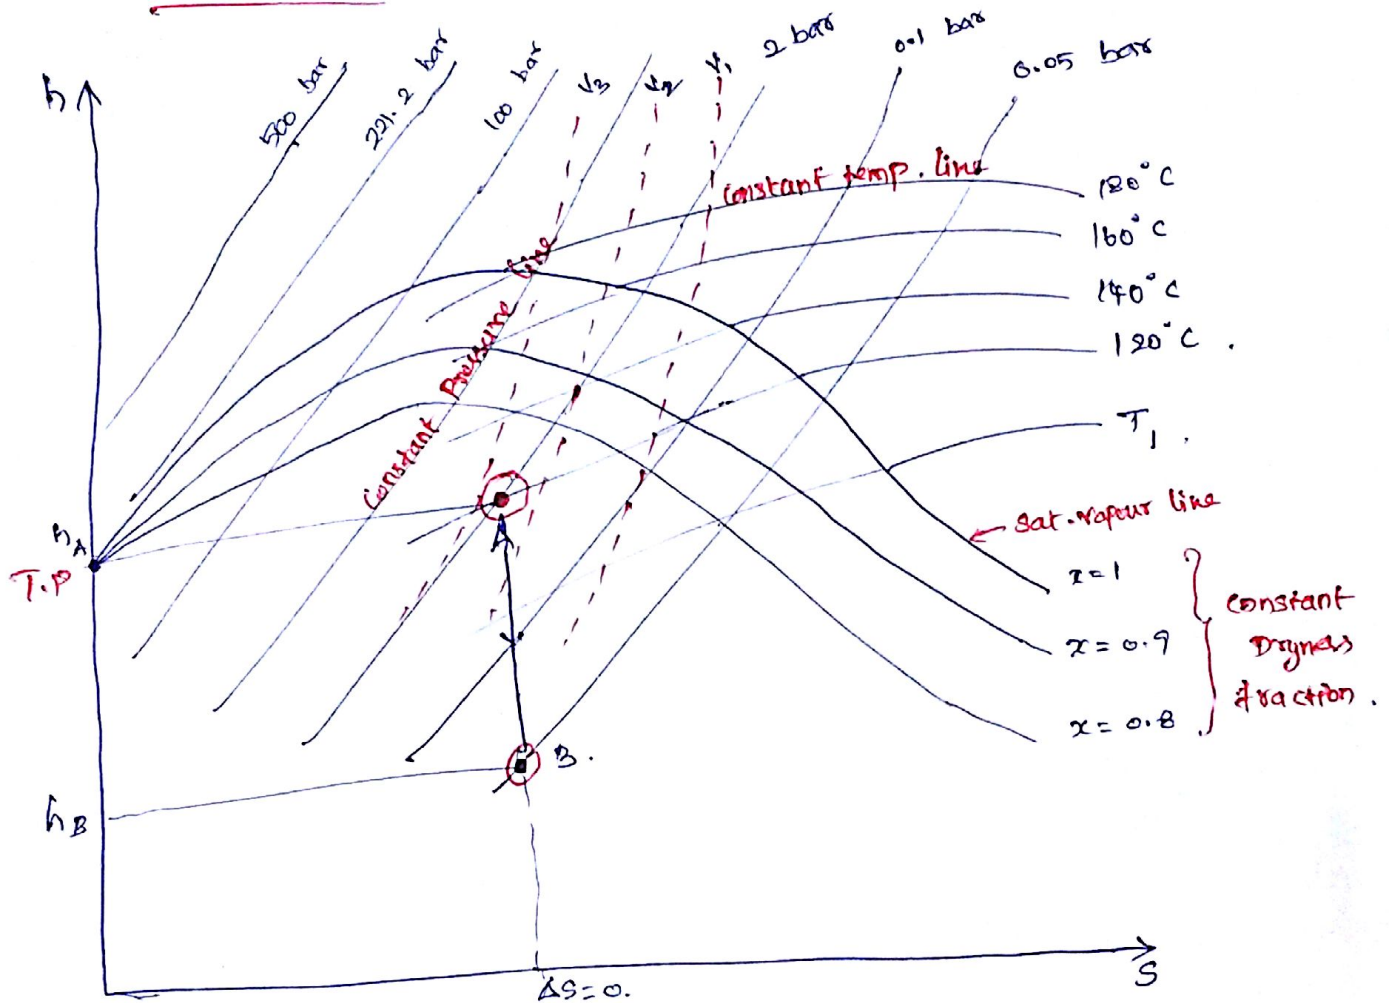 h
500 bar
221.2 bar
100 bar
V3
V2
V1
2 bar
0.1 bar
0.05 bar
Constant temp. line
180°C
160°C
140°C
120°C.
T1.
Constant Pressure line
hA
T.P
A
Sat. vapour line
x=1
x=0.9
x=0.8
Constant
Dryness
fraction.
B.
hB
S
ΔS=0.